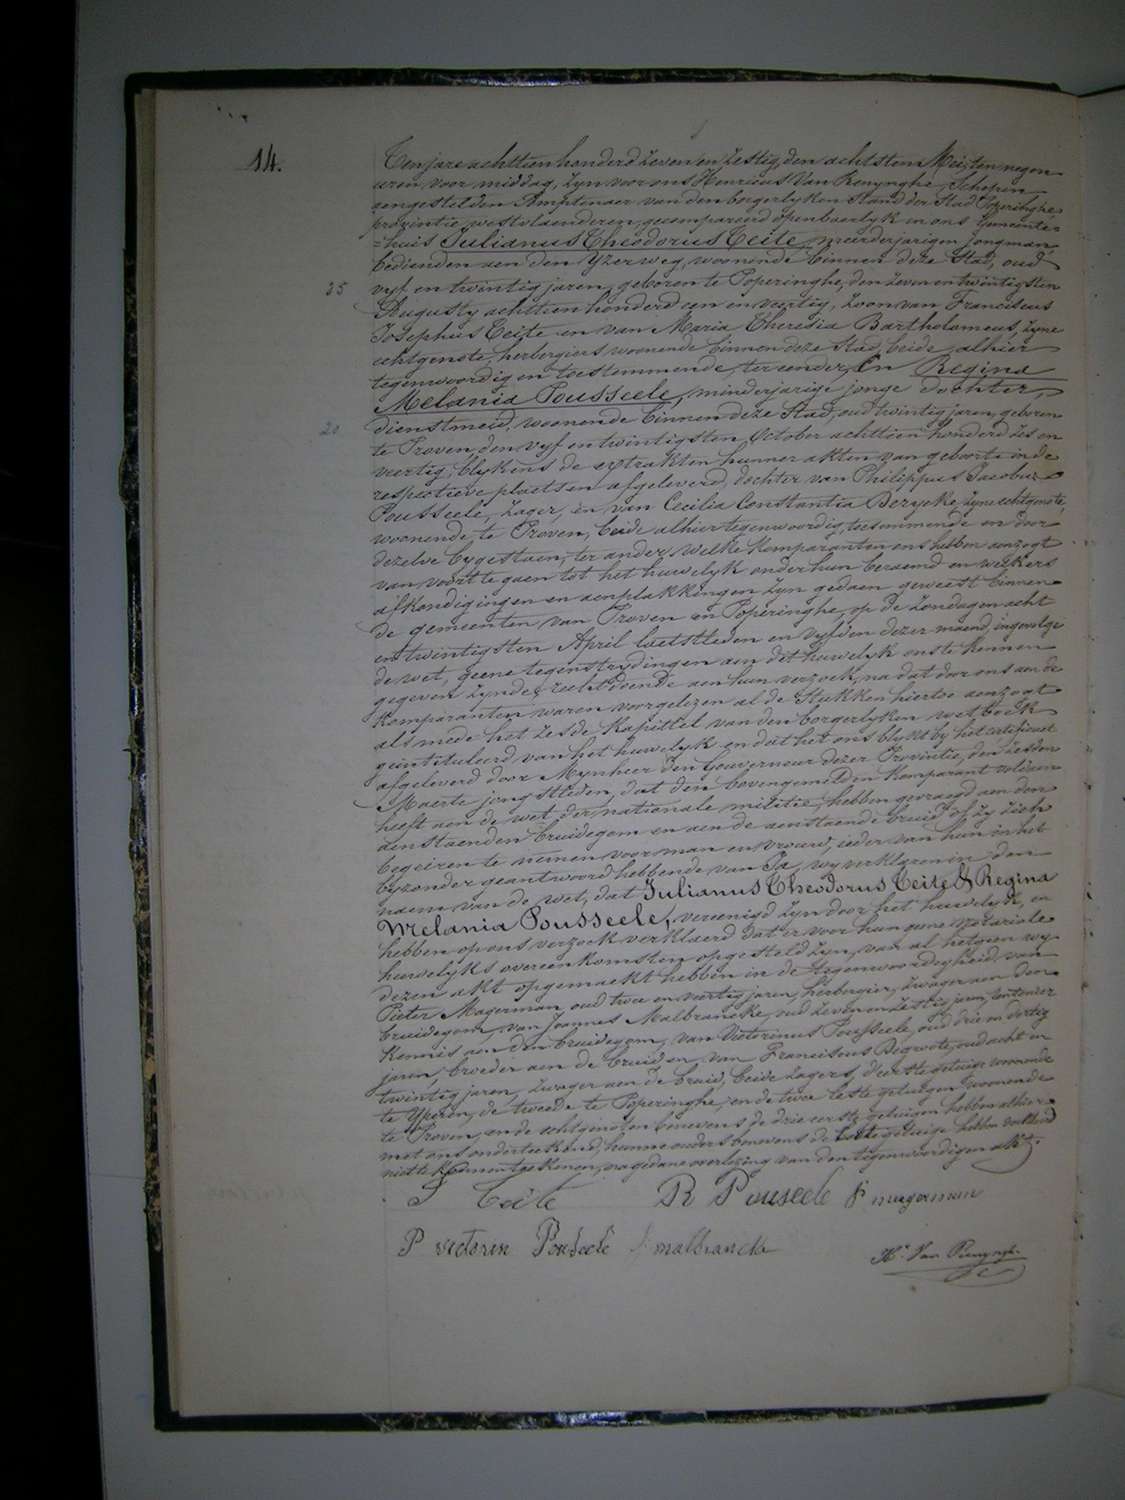 14.
Ten jare achttien honderd zeven en zestig, den achtsten Mei, ten negen
uren, voor middag, zyn voor ons Henricus Van Renynghe, Schepen
aengestelden Amptenaer van den borgerlyken Stand der Stad Poperinghe
provintie westvlaenderen, gecompareerd openbaerlyk in ons Gemeente=
=huis Julianus Theodorus Teite, meerderjarigen jongman,
bedienden aen den Yzerweg, woonende binnen deze Stad, oud
25 vyf en twintig jaren, geboren te Poperinghe, den zeven en twintigsten
Augusty achttien honderd een en veertig, zoon van Franciscus
Josephus Teite en van Maria Theresia Bartholomeus, zyne
echtgenote, herbergiers woonende binnen deze Stad, beide alhier
tegenwoordig en toestemmende, ter eender, En Regina
Melania Pousseele, minderjarige jonge dochter,
20 dienstmeid, woonende binnen deze Stad, oud twintig jaren, geboren
te Proven, den vyf en twintigsten October achttien honderd zes en
veertig, blykens de extrakten hunner akten van geboorte in de
respectieve plaetsen afgeleverd, dochter van Philippus Jacobus
Pousseele, zager, en van Cecilia Constantia Berycke, zyne echtgenote,
woonende te Proven, beide alhier tegenwoordig, toestemmende en door
dezelve bygestaen, ter ander, welke komparanten ons hebben aenzogt
van voort te gaen tot het huwelyk onder hun beraemd en welkers
afkondigingen en aenplakkingen zyn gedaen geweest binnen
de gemeenten van Proven en Poperinghe, op de Zondagen acht
en twintigsten April laetstleden en vyfden dezer maend, ingevolge
de wet, geene tegenstrydingen aen dit huwelyk ons te kennen
gegeven zynde, recht doende aen hun verzoek, na dat door ons aen de
komparanten waren voorgelezen al de Stukken hiertoe aenzogt
als mede het zesde Kapittel van den borgerlyken wetboek
geïntituleerd van het huwelyk en dat het ons blykt by het certificaet
afgeleverd door Mynheer den Gouverneur dezer Provintie, den zesden
Maerte jongstleden, dat den bovengemelden komparant voldaen
heeft aen de wet der nationale militie, hebben gevraegd aen den
aenstaenden bruidegom en aen de aenstaende bruid of zy zich
begeiren te nemen voor man en vrouw, ieder van hun in het
byzonder geantwoord hebbende van Ja, wy verklaren in den
naem van de wet, dat Julianus Theodorus Teite & Regina
Melania Pousseele, vereenigd zyn door het huwelyk, en
hebben op ons verzoek verklaerd dat er voor hun geene notariale
huwelyks overeenkomsten opgesteld zyn, van al hetgeen wy
dezen akt opgemaekt hebben in de tegenwoordigheid van
Pieter Magerman oud twee en veertig jaren, herbergier, zwager aen den
bruidegom, van Joannes Malbrancke, oud zeven en zestig jaren, rentenier
kennis aen den bruidegom, van Victorinus Pousseele, oud drie en dertig
jaren, broeder aen de bruid en van Franciscus Degroote, oud acht en
twintig jaren, zwager aen de bruid, beide zagers, d'eerste getuige woonende
te Yperen, de tweede te Poperinghe, en de twee leste getuigen woonende
te Proven, en de echtgenoten benevens de drie eerste getuigen hebben alhier
met ons onderteekend, hunne ouders benevens de leste getuige hebben verklaerd
niet te kunnen teekenen, na gedane overlezing van den tegenwoordigen akt.
J Teite R Pouseele P magerman
P victorin Pouseele J malbrancke
Hs Van Renynghe